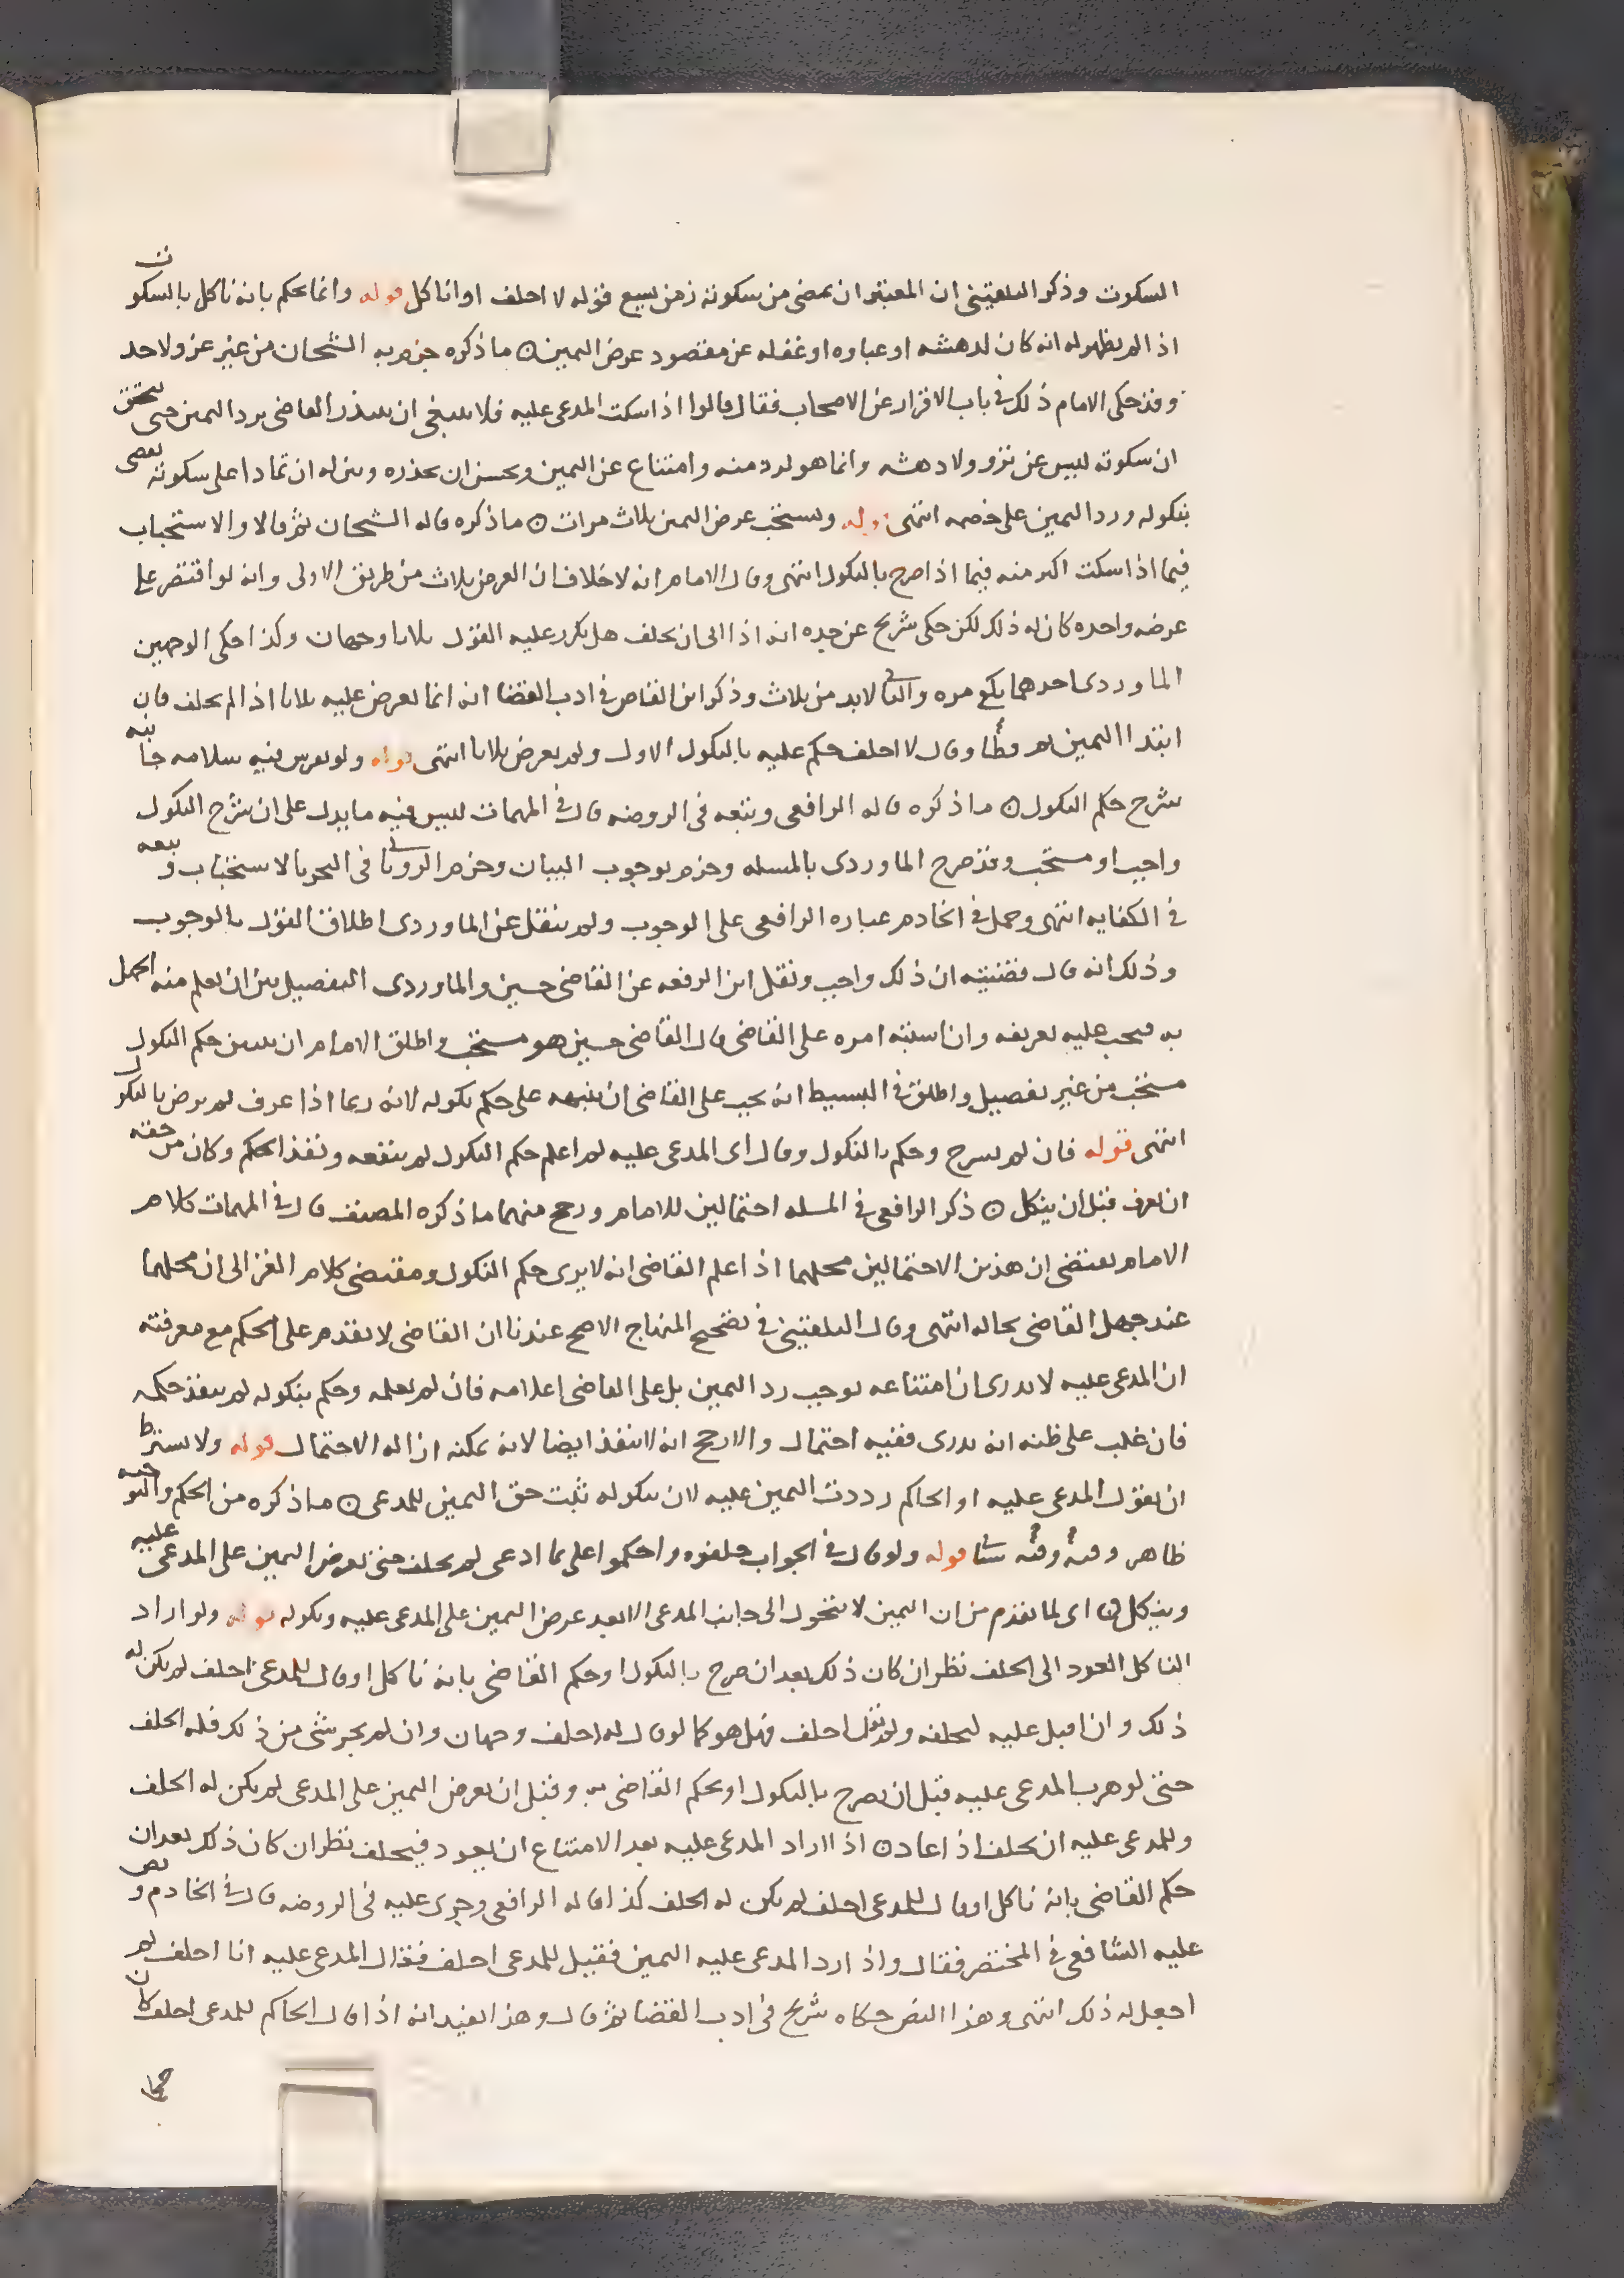 السكوت وذكر البلقيني ان المعتبر ان يمضي من سكوته زمن يسع قوله لا احلف او انا ناكل قوله وانما يحكم بانه ناكل بالسكوت
اذا لم يظهر له انه كان لدهشه او عباوه او غفله عن مقصود عرض اليمين ۞ ما ذكره جزم به الشيخان من غير عزو لاحد
وقد حكى الامام ذلك في باب الاقرار عن الاصحاب فقال قالوا اذا سكت المدعى عليه فلا ينبغي ان يبتدر القاضي برد اليمين حتى يتحقق
ان سكوته ليس عن ترو ولا دهشه وانما هو لدد منه وامتناع عن اليمين ويحسن ان يحذره ويبين له ان تمادا على سكوته يقضى
بنكوله ورد اليمين على خصمه انتهى قوله ويستحب عرض اليمين ثلاث مرات ۞ ما ذكره قاله الشيخان ثم قالا والاستحباب
فيما اذا سكت اكثر منه فيما اذا صرح بالنكول انتهى وقال الامام انه لا خلاف ان العرض ثلاث من طريق الاولى وانه لو اقتصر على
عرضه واحده كان له ذلك لكن حكى شريح عن جده انه اذا ابى ان يحلف هل يكرر عليه القول ثلاثا وجهان وكذا حكى الوجهين
الماوردي احدهما يكفي مره والثاني لا بد من ثلاث وذكر ابن القاص في ادب القضا انه انما يعرض عليه ثلاثا اذا لم يحلف فان
ابتدا اليمين ثم قطا وقال لا احلف حكم عليه بالنكول الاول ولم يعرض ثلاثا انتهى قوله ولو تفرس فيه سلامه جانبه
شرح حكم النكول ۞ ما ذكره قاله الرافعي وتبعه في الروضه قال في المهمات ليس فيه ما يدل على ان شرح النكول
واجب او مستحب وقد صرح الماوردي بالمسله وجزم بوجوب البيان وجزم الروياني في البحر بالاستحباب وتبعه
في الكفايه انتهى وحمل في الخادم عباره الرافعي على الوجوب ولم ينقل عن الماوردي اطلاق القول بالوجوب
وذلك انه قال قضيته ان ذلك واجب ونقل ابن الرفعه عن القاضي حسين والماوردي التفصيل بين ان يعلم منه الجهل
به فيجب عليه تعريفه وان اشتبه امره على القاضي قال القاضي حسين هو مستحب واطلق الامام ان تبيين حكم النكول
مستحب من غير تفصيل واطلق في البسيط انه يجب على القاضي ان ينبهه على حكم نكوله لانه ربما اذا عرف لم يرض بالنكول
انتهى قوله فان لم يشرح وحكم بالنكول وقال اى المدعى عليه لم اعلم حكم النكول لم ينفعه ونفذ الحكم وكان من حقه
ان يعرف قبل ان ينكل ۞ ذكر الرافعي في المسله احتمالين للامام ورجح منهما ما ذكره المصنف قال في المهمات كلام
الامام يقتضي ان هذين الاحتمالين محلهما اذا علم القاضي انه لا يدرى حكم النكول ومقتضى كلام الغزالي ان محلهما
عند جهل القاضي بحاله انتهى وقال البلقيني في تصحيح المنهاج الاصح عندنا ان القاضي لا يقدم على الحكم مع معرفته
ان المدعى عليه لا يدرى ان امتناعه يوجب رد اليمين بل على القاضي اعلامه فان لم يعلمه وحكم بنكوله لم ينفذ حكمه
فان غلب على ظنه انه يدرى ففيه احتمال والارجح انه لا ينفذ ايضا لانه يمكنه ازاله الاحتمال قوله ولا يشترط
ان يقول المدعى عليه او الحاكم رددت اليمين عليه لان بنكوله ثبت حق اليمين للمدعى ۞ ما ذكره من الحكم والتوجيه
ظاهر قوله ولو قال في الجواب حلفوه واحكموا على بما ادعى لم يحلف حتى تعرض اليمين على المدعى عليه
وينكل ۞ اى لما تقدم من ان اليمين لا تتحول الى جانب المدعى الا بعد عرض اليمين على المدعى عليه ونكوله قوله ولو اراد
الناكل العود الى الحلف نظر ان كان ذلك بعد ان صرح بالنكول او حكم القاضي بانه ناكل او قال للمدعى احلف لم يكن له
ذلك وان اقبل عليه ليحلفه ولم يقل احلف فهل هو كما لو قال له احلف وجهان وان لم يجر شى من ذلك فله الحلف
حتى لو هرب المدعى عليه قبل ان يصرح بالنكول او يحكم القاضي به وقبل ان يعرض اليمين على المدعى لم يكن له الحلف
وللمدعى عليه ان يحلف اذا عاد ۞ اذا اراد المدعى عليه بعد الامتناع ان يعود فيحلف نظر ان كان ذلك بعد ان
حكم القاضي بانه ناكل او قال للمدعى احلف لم يكن له الحلف كذا قاله الرافعي وجرى عليه في الروضه قال في الخادم ونص
عليه الشافعي في المختصر فقال واذا رد المدعى عليه اليمين فقيل للمدعى احلف فقال المدعى عليه انا احلف لم
اجعل له ذلك انتهى وهذا النص حكاه شريح في ادب القضا ثم قال وهذا يفيد انه اذا قال الحاكم للمدعى احلف كان